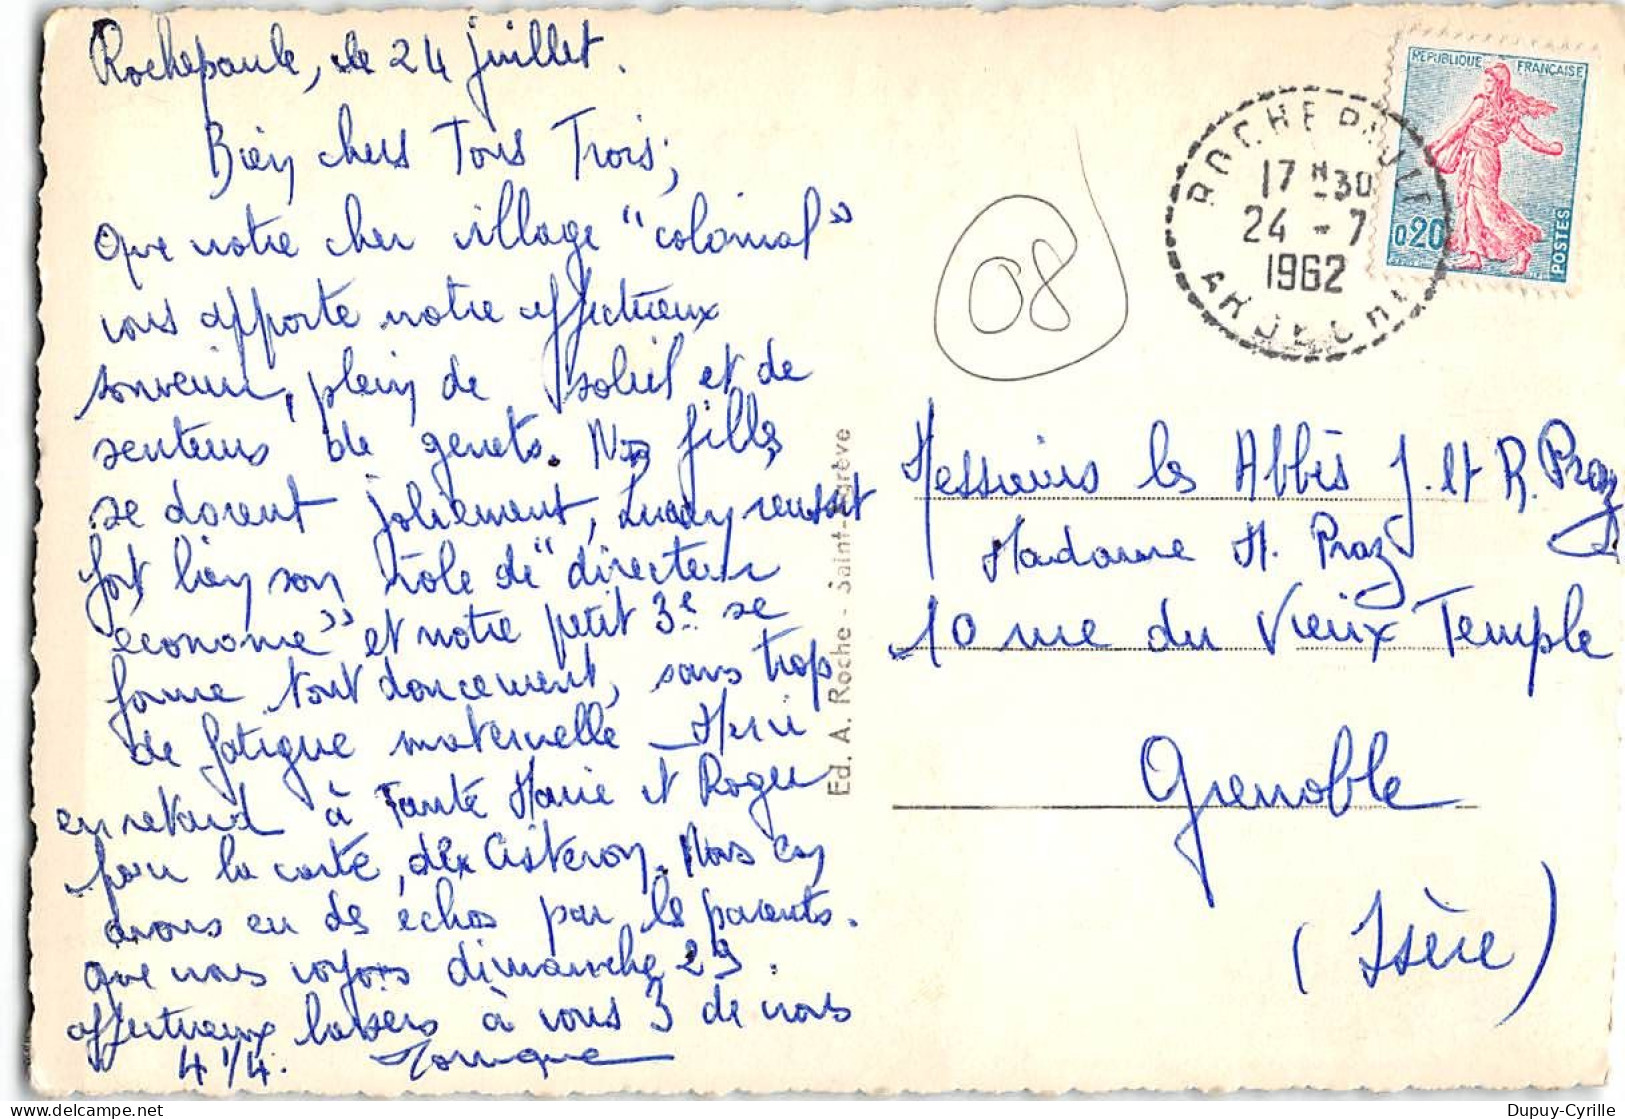 Rochepaule, le 24 juillet.
Bien chers Tous Trois,
Que notre cher village "colonial"
vous apporte notre affectueux
souvenir, plein de soleil et de
senteurs de genets. Nos filles
se dorent joliement, réussit
fort bien son rôle de "directeur
économe" et notre petit 3e se
forme tout doucement, sans trop
de fatigue maternelle - Merci
en retard à Tante Marie et Roger
pour la carte, de Cisteron. Nous en
avons eu des échos par les parents.
que nous voyons dimanche 29.
affectueux baisers à vous 3 de nous
4 1/4. Monique
Ed. A. Roche - Saint-Agrève
08
ROCHEPAULE
17 H 30
24 - 7
1962
ARDECHE
REPUBLIQUE FRANCAISE
0,20
POSTES
Messieurs les Abbés J. et R. Praz
Madame H. Praz
10 rue du Vieux Temple
Grenoble
(Isère)
Dupuy-Cyrille